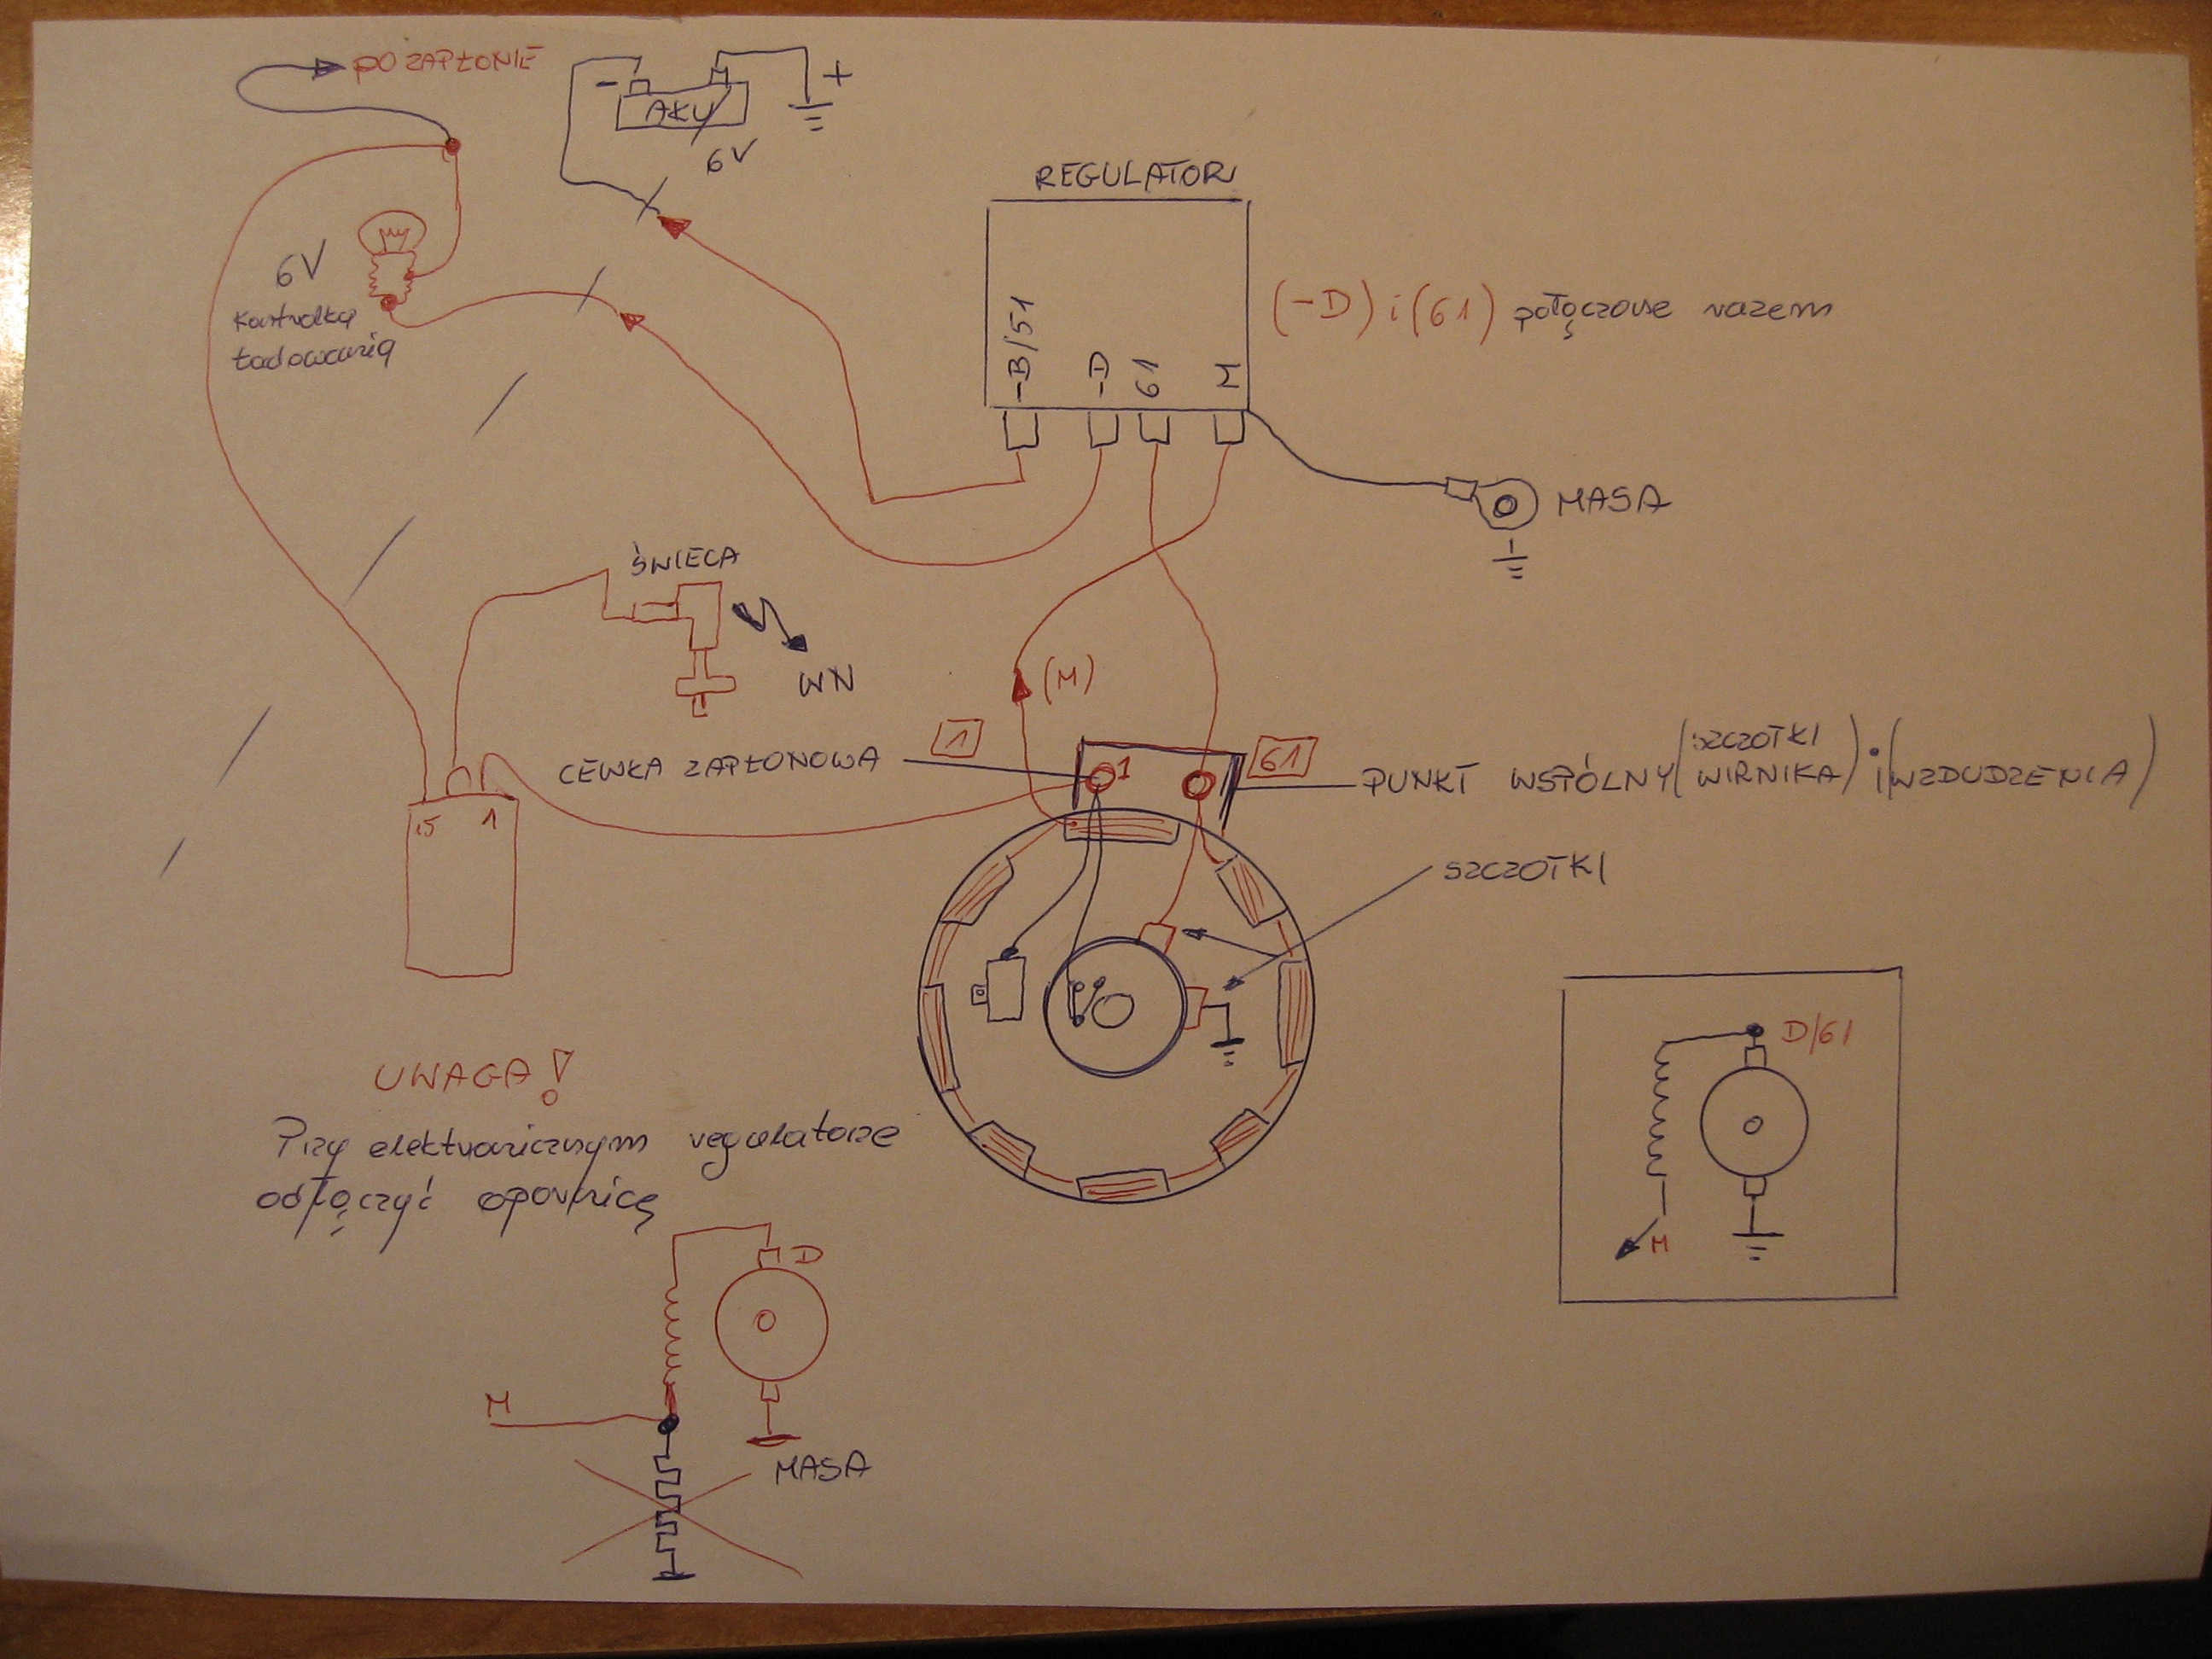 PO ZAPŁONIE
- AKU +
6V
REGULATOR
6V
kontrolka
ładowania
-B/51 -D 61 M
(-D) i (61) połączone razem
MASA
ŚWIECA
WN
(M)
1
61
CEWKA ZAPŁONOWA
1
PUNKT WSPÓLNY (SZCZOTKI WIRNIKA) i (WZDUDZENIA)
15 1
SZCZOTKI
UWAGA!
Przy elektronicznym regulatorze
odłączyć opornicę
D/61
M
D
M
MASA